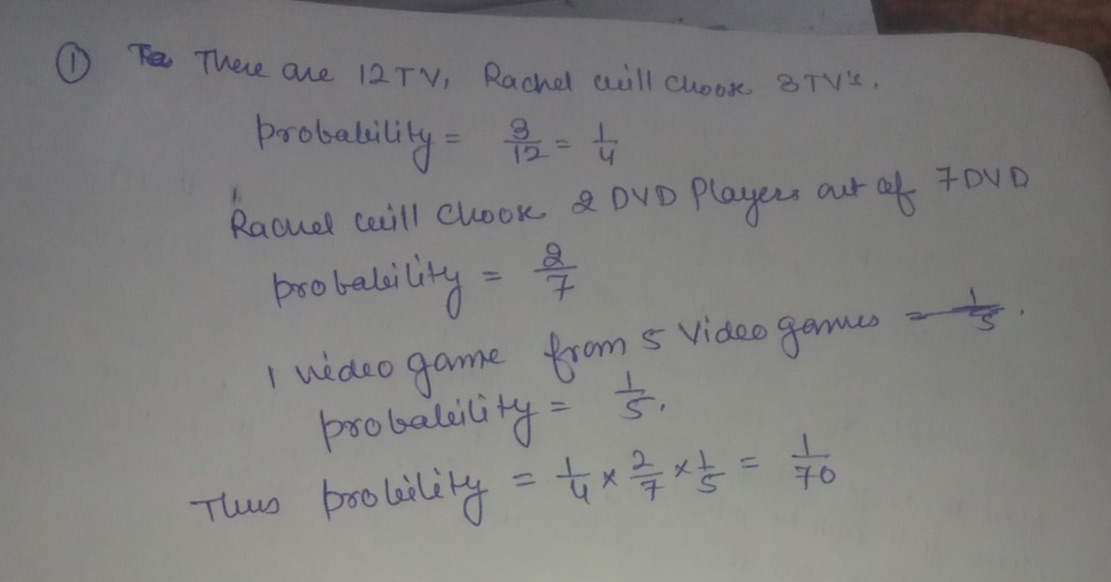 ① There are 12 TV, Rachel will choose 3 TV's.
probability = 3/12 = 1/4
Rachel will choose 2 DVD Players out of 7 DVD
probability = 2/7
1 video game from 5 Video games = 1/5.
probability = 1/5.
Thus probility = 1/4 × 2/7 × 1/5 = 1/70